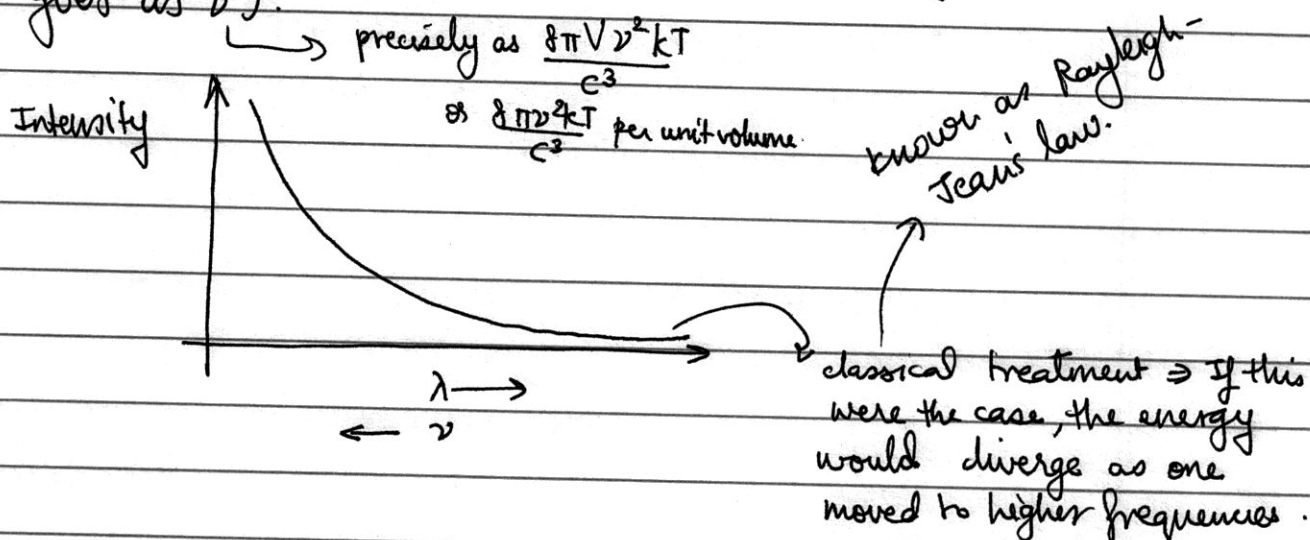 goes as
precisely as 8πVν²kT
c³
or 8πν²kT per unit volume.
c³
Intensity
known as Rayleigh-
Jean's law.
λ→
← ν
classical treatment ⇒ If this
were the case, the energy
would diverge as one
moved to higher frequencies.